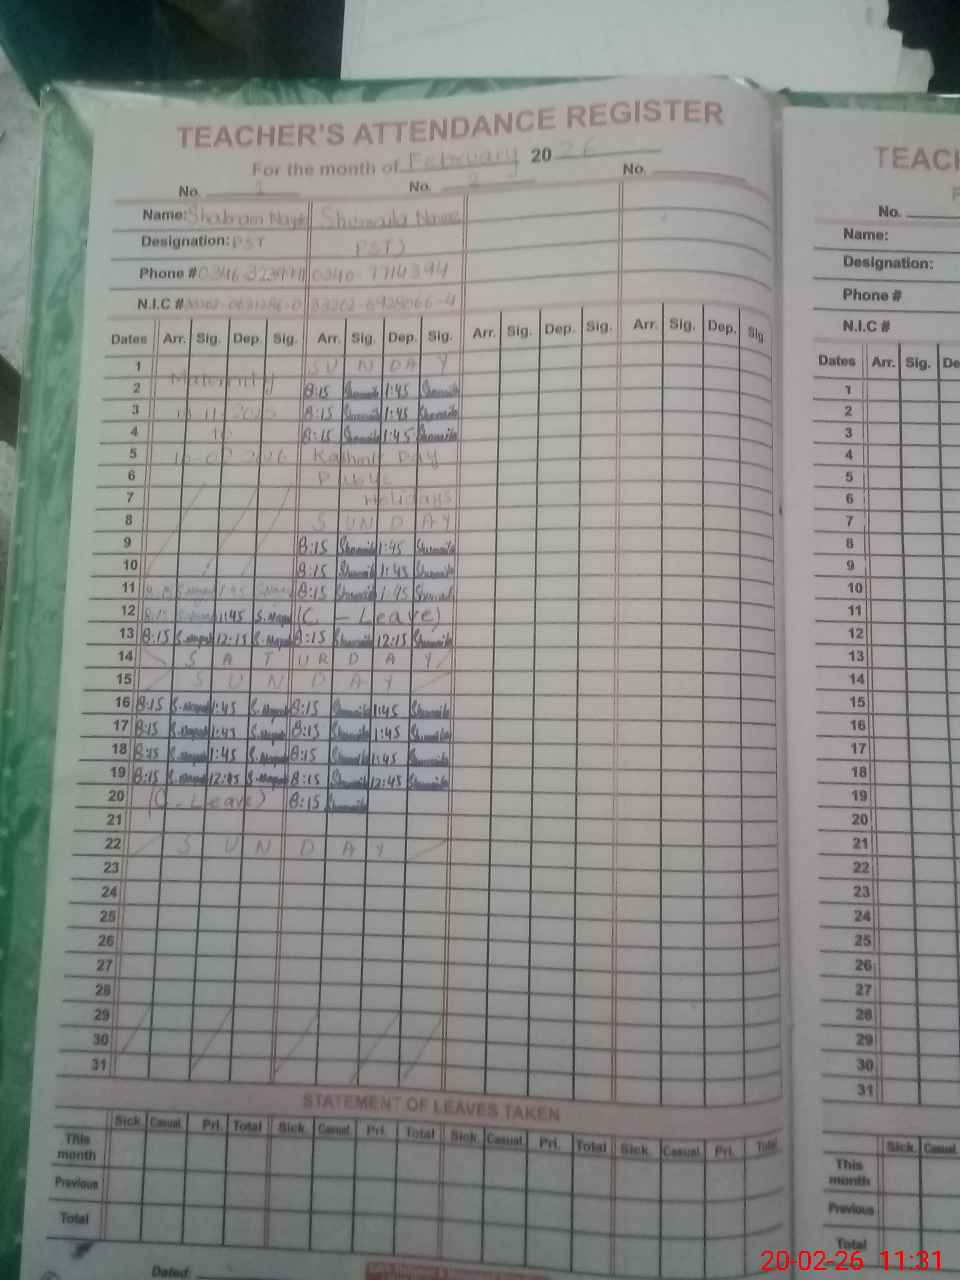 TEACHER'S ATTENDANCE REGISTER
For the month of February 2026
No. 1 No. 2 No.
Name: Shabnam Shumaila
Designation: PST PST)
Phone # 0340-7714394
N.I.C #
Dates Arr. Sig. Dep. Sig. Arr. Sig. Dep. Sig. Arr. Sig. Dep. Sig. Arr. Sig. Dep. Sig.
1 SUNDAY
Maternity
2 8:15 Shumaila 1:45 Shumaila
3 8:15 Shumaila 1:45 Shumaila
4 8:15 Shumaila 1:45 Shumaila
5 Kashmir Day
6 Public
7 Holidays
8 SUNDAY
9 8:15 Shumaila 1:45 Shumaila
10 8:15 Shumaila 1:45 Shumaila
11 8:15 1:45 8:15 Shumaila 1:45 Shumaila
12 8:15 1:45 (C - Leave)
13 8:15 12:15 8:15 Shumaila 12:15 Shumaila
14 SATURDAY
15 SUNDAY
16 8:15 1:45 8:15 Shumaila 1:45 Shumaila
17 8:15 1:45 8:15 Shumaila 1:45 Shumaila
18 8:15 1:45 8:15 Shumaila 1:45 Shumaila
19 8:15 12:45 8:15 Shumaila 12:45 Shumaila
20 (C - Leave) 8:15 Shumaila
21
22 SUNDAY
23
24
25
26
27
28
29
30
31
STATEMENT OF LEAVES TAKEN
Sick Casual Pri. Total Sick Casual Pri. Total Sick Casual Pri. Total Sick Casual Pri. Total
This month
Previous
Total
Dated:
TEACH
No.
Name:
Designation:
Phone #
N.I.C #
Dates Arr. Sig. De
1
2
3
4
5
6
7
8
9
10
11
12
13
14
15
16
17
18
19
20
21
22
23
24
25
26
27
28
29
30
31
Sick Casual
This month
Previous
Total
20-02-26 11:31